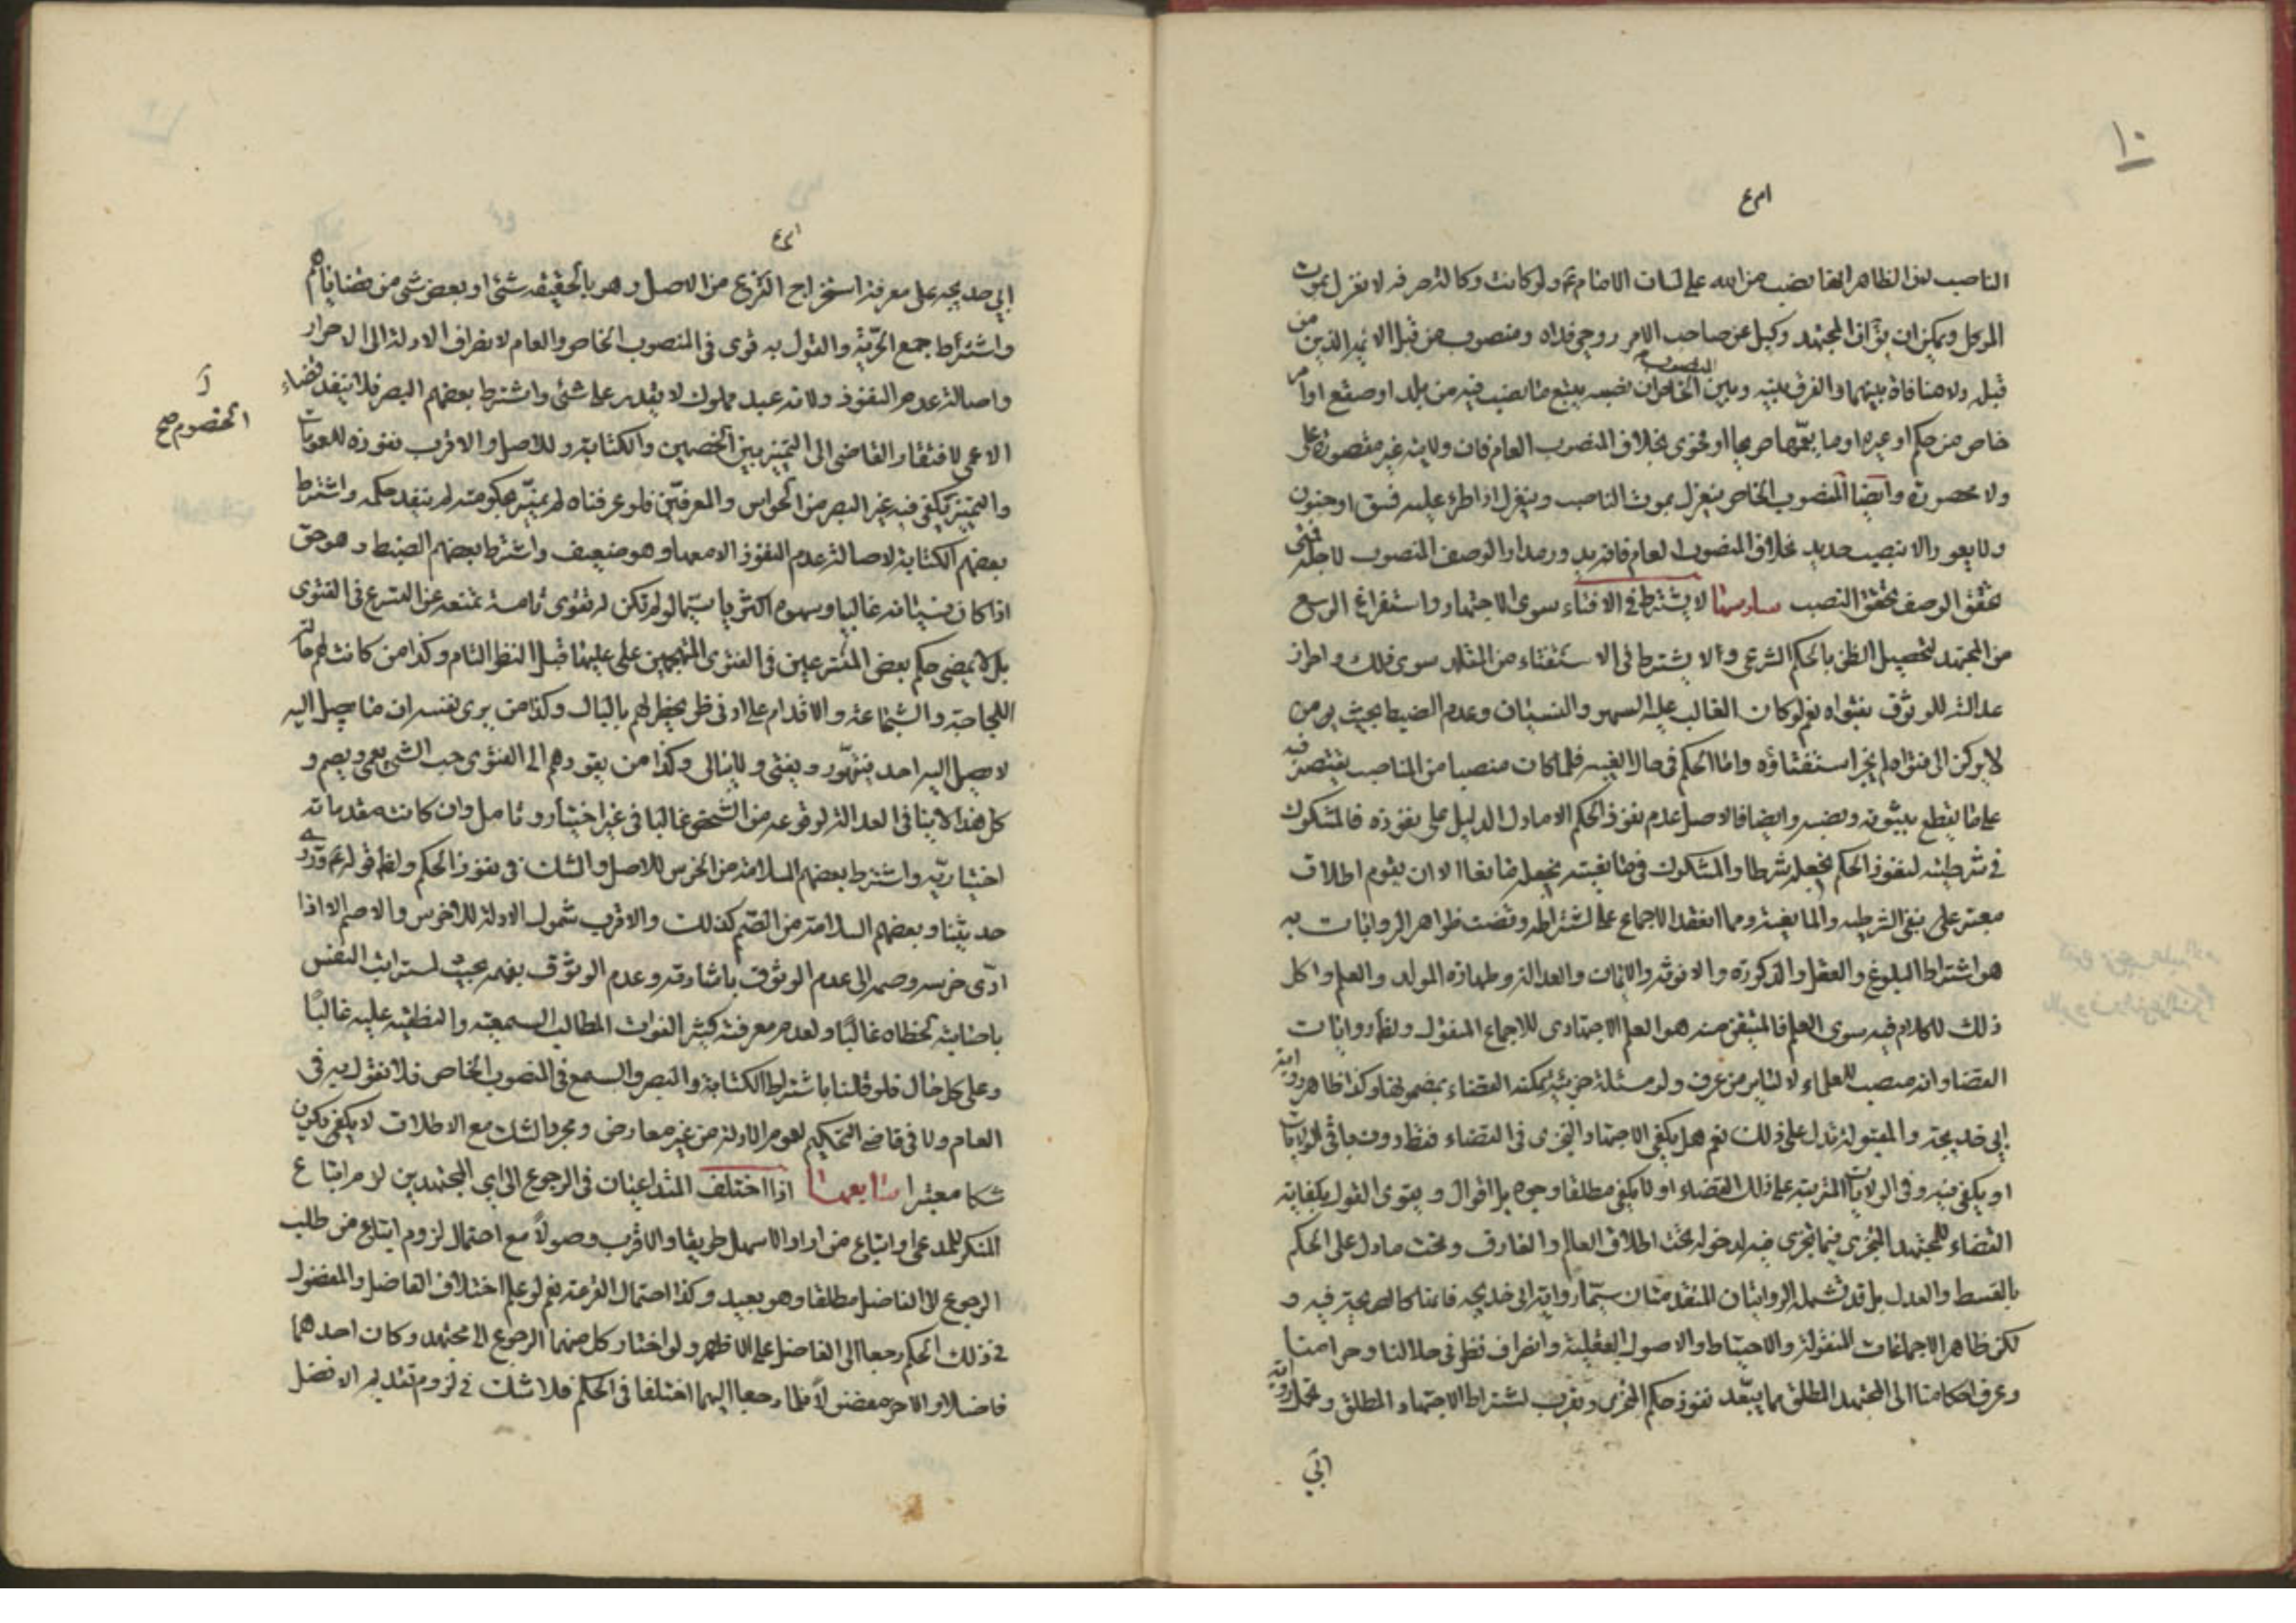 ١٠
الناصب لان الظاهر انها نصب من الله على لسان الامام ثم ولو كانت وكالة صرفه لا نعزل بموت
الموكل ويمكن ان يق ان المجتهد وكيل عن صاحب الامر روحي فداه ومنصوب من قبل الائمة الذين من
قبله ولا منافاة بينهما والفرق بينه وبين المنصوب الخاص ان نصبه يتبع ما نصب فيه من بلد او صقع او امر
خاص من حكم او غيره او ما يعمها صريحا او فحوى بخلاف المنصوب العام فان ولايته غير مقصورة على
ولا محصورة وايضا المنصوب الخاص ينعزل بموت الناصب وينعزل اذا طرء عليه فسق او جنون
ولا يعود الا بنصب جديد بخلاف المنصوب العام فانه يدور مدار الوصف المنصوب لاجله فمتى
تحقق الوصف تحقق النصب سادسها لا يشترط في الافتاء سوى الاجتهاد واستفراغ الوسع
من المجتهد لتحصيل الظن بالحكم الشرعي ولا يشترط في الاستفتاء من المقلد سوى ذلك واحراز
عدالته للوثوق بفتواه نعم لو كان الغالب عليه السهو والنسيان وعدم الضبط بحيث
لا يركن الى فتواه لم يجز استفتاؤه واما الحكم في حال الغيبه فلما كان منصبا من المناصب يقتصر فيه
على ما يقطع بثبوته ونصبه وايضا فالاصل عدم نفوذ الحكم الا ما دل الدليل على نفوذه فالمشكوك
في شرطيته لنفوذ الحكم نجعله شرطا والمشكوك في مانعيته نجعله مانعا الا ان يقوم اطلاق
معتبر على نفي الشرطيه والمانعيه ومما انعقد الاجماع على اشتراطه وقضت ظواهر الروايات به
هو اشتراط البلوغ والعقل والذكورة والانوثه والايمان والعدالة وطهارة المولد والعلم واكل
ذلك لا كلام فيه سوى العلم فالمتيقن منه هو العلم الاجتهادي للاجماع المنقول ولظهر روايات
القضاء وانه منصب للعلماء لا لساير من عرف ولو مسئلة جزئية يمكنه القضاء بمضمونها وكذا ظاهر رواية
ابي خديجة والمقبولة تدل على ذلك نعم هل يكفي الاجتهاد التجزي في القضاء فقط دون باقي الولايات
او يكفي فيه وفي الولايات المترتبة على ذلك القضاء او لا يكفي مطلقا وجوه بل اقوال ويقوى القول بكفاية
القضاء للمجتهد المتجزي فيما تجزى فيه لدخوله تحت اطلاق العالم والعارف وتحت ما دل على الحكم
بالقسط والعدل بل قد تشمله الروايتان المتقدمتان سيما رواية ابي خديجه فانها كالصريحة فيه و
لكن ظاهر الاجماعات المنقولة والاحتياط والاصول العقلية وانصراف نظر في حلالنا وحرامنا
وعرف احكامنا الى المجتهد المطلق مما يبعد نفوذ حكم المتجزي ويقرب اشتراط الاجتهاد المطلق وتحمل رواية
ابي
ابي خديجه على معرفة استخراج الفرع من الاصل وهو بالحقيقه شئ او بعض شئ من قضاياهم
واشترط جمع الحرية والقول به قوى في المنصوب الخاص والعام لانصراف الادلة الى الاحرار
واصالة عدم النفوذ ولانه عبد مملوك لا يقدر على شئ واشترط بعضهم البصر فلا ينفذ قضاء
الاعمى لافتقار القاضي الى التميز بين الخصمين والكتابة وللاصل والاقرب نفوذه للعمومات
والتميز يكفي فيه غير البصر من الحواس والمعرفين فلو عرفناه لم يميز حكومته لم ينفذ حكمه واشترط
الخصوم صح
بعضهم الكتابة لاصالة عدم النفوذ الا معها وهو ضعيف واشترط بعضهم الضبط وهو حق
اذا كان نسيانه غالبيا وسهوه اكثريا سيما لو لم تكن له تقوى تامة تمنعه عن التسرع في الفتوى
بل لا يمضي حكم بعض المتسرعين في الفتوى المتهجمين على عليها قبل النظر التام وكذا من كانت لهم
اللجاجة والشجاعة والاقدام على ادنى نظر يخطر لهم بالبال وكذا من يرى نفسه ان ما يصل اليه
لا يصل اليه احد فيتهور ويفتي ولا يبالي وكذا من يقودهم الى الفتوى حب الشئ يعمي ويصم و
كل هذا لا ينافي العدالة لوقوعه من الشخص غالبا في غير اختيار وتامل وان كانت مقدماته
اختياريه واشترط بعضهم السلامة من الخرس للاصل والشك في نفوذ الحكم ولظ قوله
حديثنا وبعضهم السلامة من الصمم كذلك والاقرب شمول الادلة للاخرس والاصم الا اذا
ادى خرسه وصممه الى عدم الوثوق باشارته وعدم الوثوق بفهمه بحيث النفس
باصابته لخطاه غالبا ولعدم معرفته كيثر المطالب السمعيه والنطقيه عليه غالبا
وعلى كل حال فلو قلنا باشتراط الكتابة والبصر والسمع في المنصوب الخاص فلا نقول به في
العام ولا في قاضي التحكيم لعموم الادلة من غير معارض ومجرد الشك مع الاطلاق لا يكفي فيكون
شكا معتبرا سابعها اذا اختلف المتداعيان في الرجوع الى اي المجتهدين لزم اتباع
المنكر للمدعي او اتباع من اراد الاسهل طريقا والاقرب وصولا مع احتمال لزوم اتباع من طلب
الرجوع الى الفاضل مطلقا وهو بعيد وكذا احتمال القرعة نعم لو علم اختلاف الفاضل والمفضول
في ذلك الحكم رجعا الى الفاضل على الاظهر ولو اختار كل منهما الرجوع الى مجتهد وكان احدهما
فاضلا والاخر مفضولا فلما رجعا اليهما اختلفا في الحكم فلا شك في لزوم تقديم الافضل